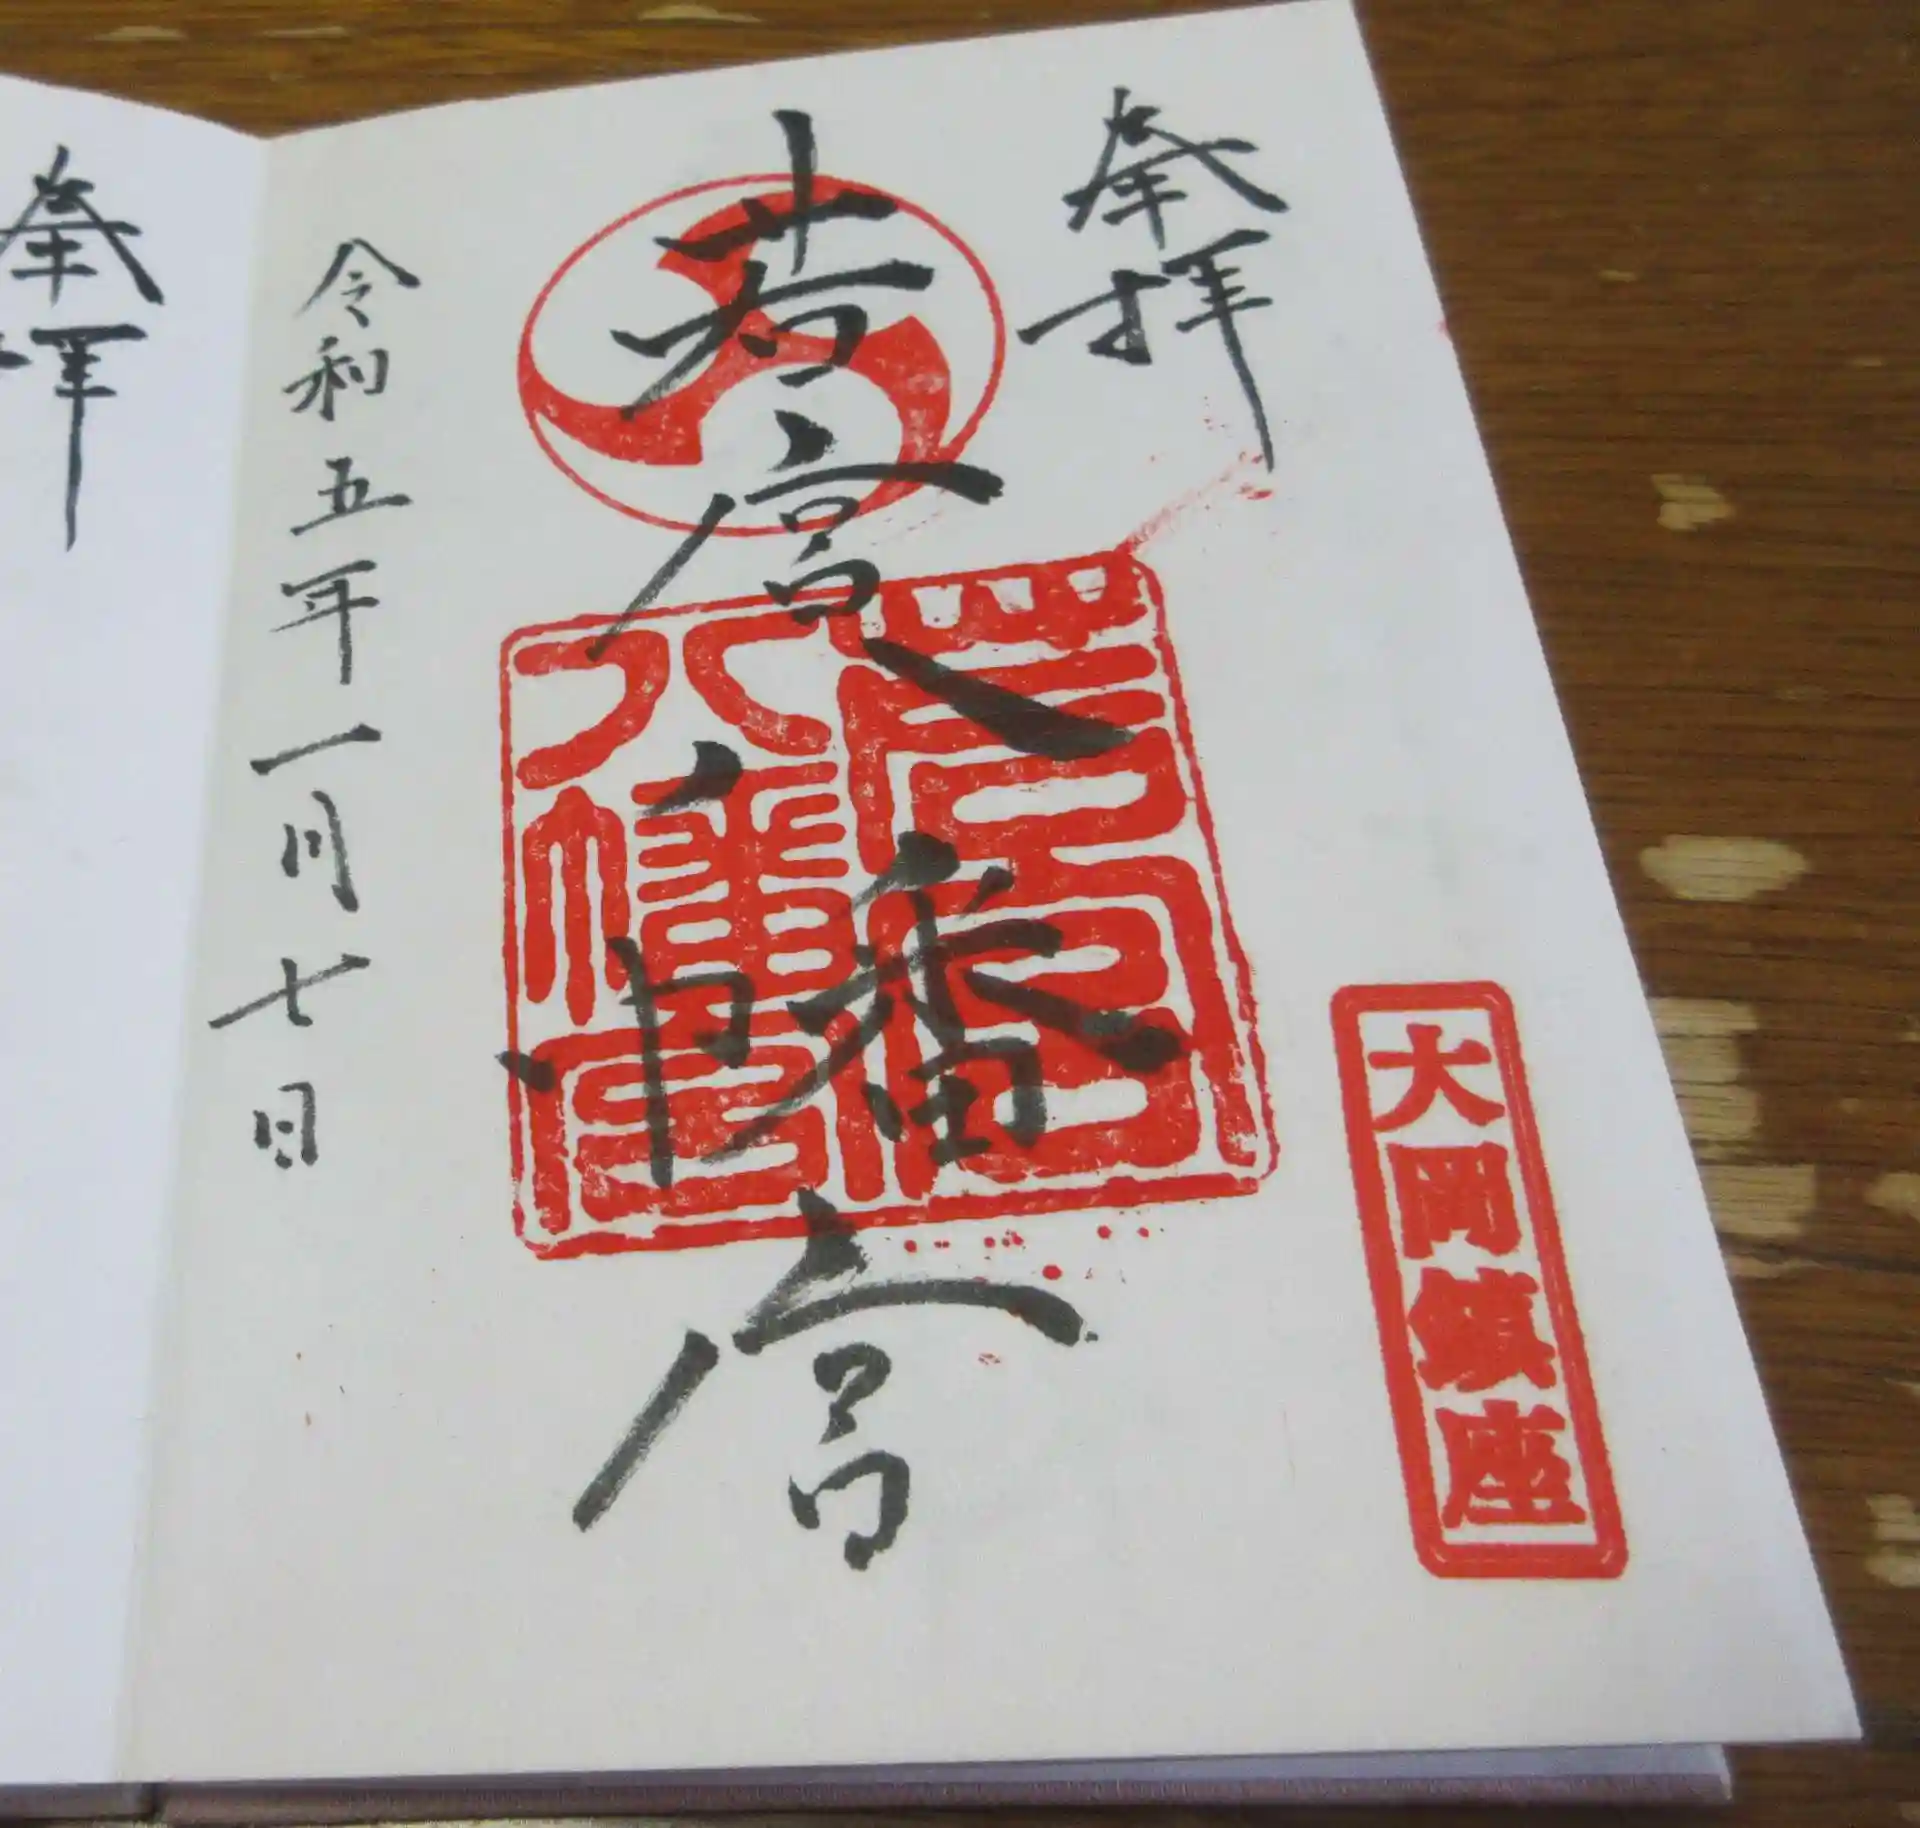 奉拝
大岡鎮座
若宮八幡宮
若宮八幡宮
令和五年一月七日
奉拝